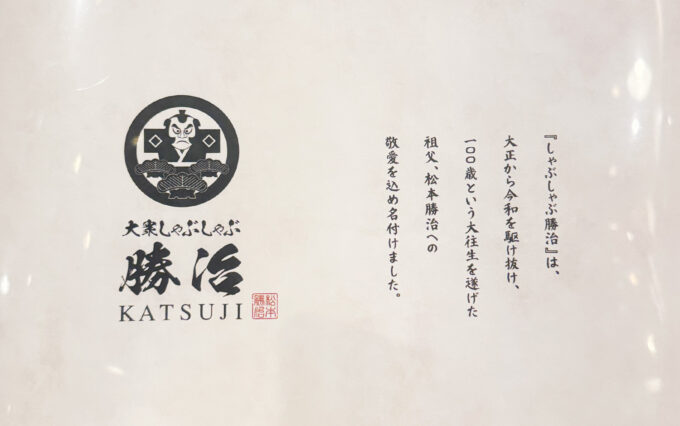 大衆しゃぶしゃぶ
勝治
KATSUJI
松本
勝治
『しゃぶしゃぶ勝治』は、
大正から令和を駆け抜け、
一〇〇歳という大往生を遂げた
祖父、松本勝治への
敬愛を込め名付けました。